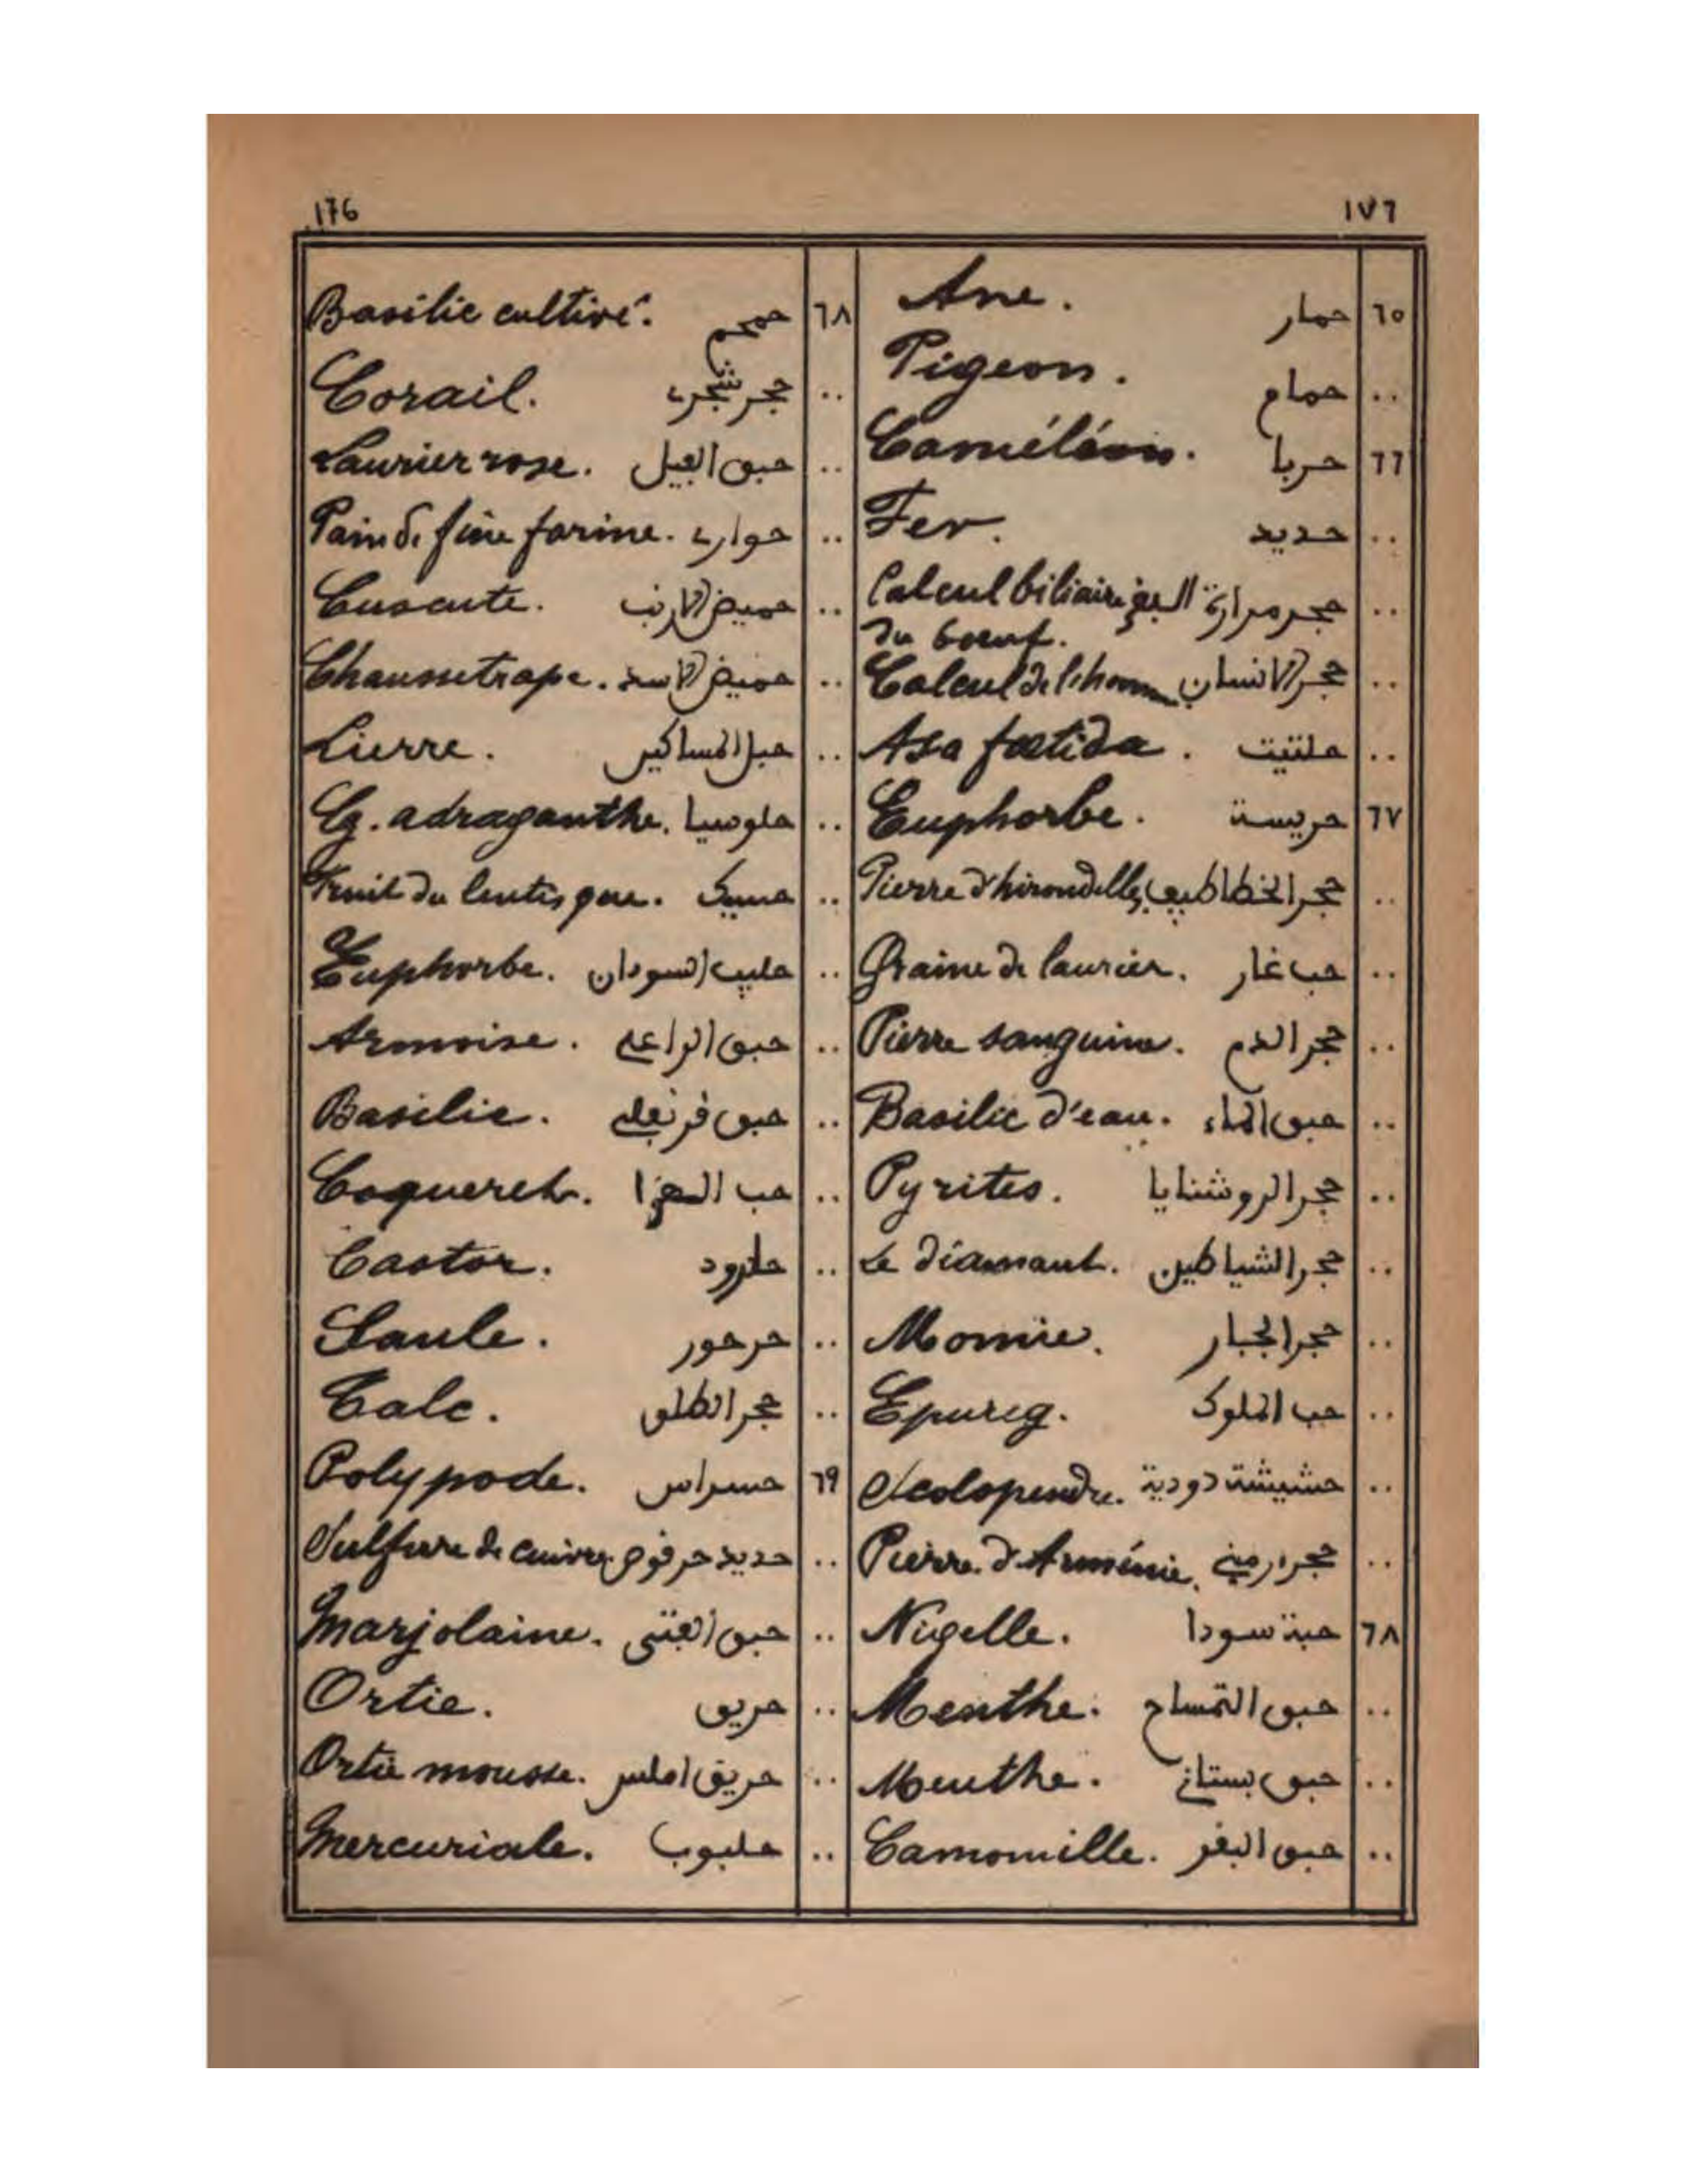 176 ١٧٦
٦٥ حمار Ane.
.. حمام Pigeon.
٦٦ حربا Caméléon.
.. حديد Fer.
.. حجر مرارة البقر Calcul biliaire
du bœuf.
.. حجر الانسان Calcul de l'homme
.. حلتيت Asa fœtida.
٦٧ حريسة Euphorbe.
.. حجر الخطاطيب Pierre d'hirondelles
.. حب غار Graine de laurier.
.. حجر الدم Pierre sanguine.
.. حبق الماء Basilic d'eau.
.. حجر الروشنايا Pyrites.
.. حجر الشياطين Le diamant.
.. حجر الجبار Momie.
.. حب الملوك Epurg.
.. حشيشة دودية Scolopendre.
.. حجر ارميني Pierre d'Arménie.
٦٨ حبة سودا Nigelle.
.. حبق التمساح Menthe.
.. حبق بستاني Menthe.
.. حبق البقر Camomille.
٦٨ حمحم Basilic cultivé.
.. حجر شجري Corail.
.. حبق الفيل Laurier rose.
.. حواري Pain de fine farine.
.. حميض الارنب Cuscute.
.. حميض الاسد Chaussetrape.
.. حبل المساكين Lierre.
.. حلوسيا Eg. adraganthe.
.. حسيك Fruit du lentisque.
.. حليب السودان Euphorbe.
.. حبق الراعي Armoise.
.. حبق فرنفلي Basilic.
.. حب Coqueret.
.. حلرود Castor.
.. حرحور Saule.
.. حجر الطلق Talc.
٦٩ حسراس Polypode.
.. حديد حرقوص Sulfure de cuivre.
.. حبق الفتى Marjolaine.
.. حريق Ortie.
.. حريق املس Ortie mousse.
.. حلبوب Mercuriale.